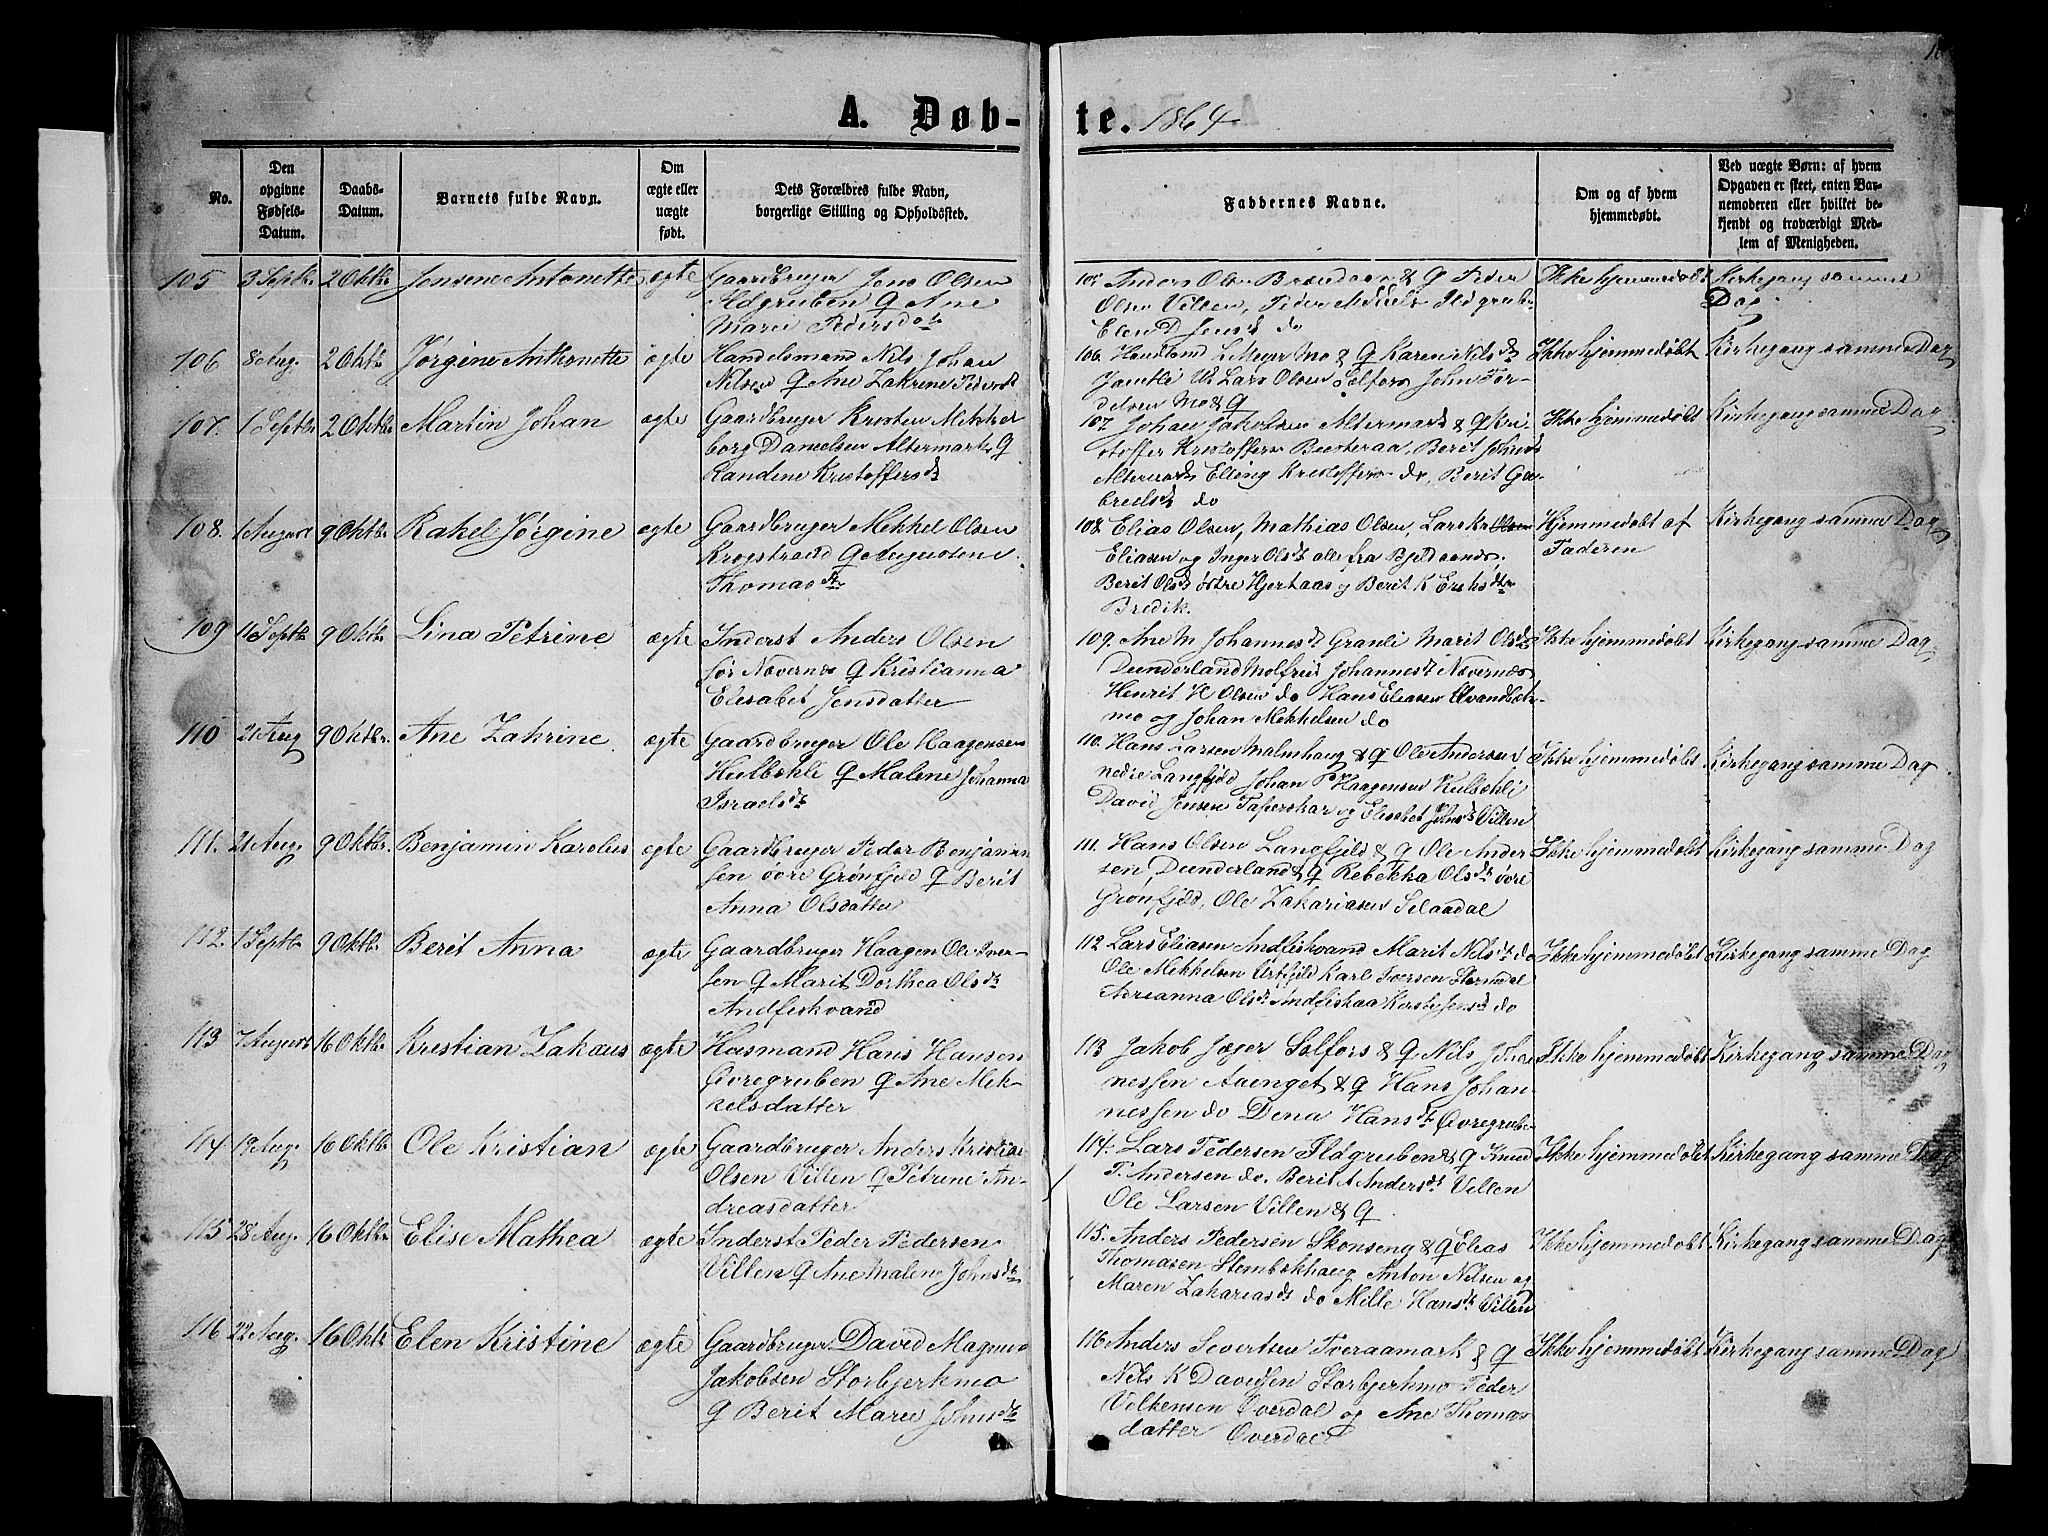 A. Døb-
te. 1864
No.
Den
opgivne
Fødsels-
Datum.
Daabs-
Datum.
Barnets fulde Navn.
Om
ægte eller
uægte
født.
Dets Forældres fulde Navn,
borgerlige Stilling og Opholdssted.
Faddernes Navne.
Om og af hvem
hjemmedøbt.
Ved uægte Børn: af hvem
Opgaven er skeet, enten Bar-
nemoderen eller hvilket be-
kjendt og troværdigt Med-
lem af Menigheden.
105 3 Septbr. 2 Oktbr. Jensene Antonette ægte Gaardbruger Jens Olsen
Ildgruben & Ane
Marie Pedersdtr
105 Anders Olsen & Peder
Olsen Villen, Peder Ildgrub.
Elen D Jensd do
Ikke hjemmedøbt Kirkegang samme
Dag
106 8 Aug. 2 Oktbr Jørgine Anthonette ægte Handelsmand Nils Johan
Nilsen & Ane Zakrine Pedersdt
106 L Meyer Mo & Karen Nilsdt
Jamtli Lars Olsen Selfors John Tor-
Mo &
Ikke hjemmedøbt Kirkegang samme Dag
107. 1 Septbr 2 Oktbr Martin Johan ægte Gaardbruger Kristen Mekkel
borg Danielsen Altermark &
Randine Kristoffersdt
107 Johan Jakobsen Altermark & Kri-
stoffer Kristoffersen Berit Johnsdt
Altermark Elling Kristoffersen do, Berit Ga-
brielsdt do
Ikke hjemmedøbt Kirkegang samme Dag
108. 1 August 9 Oktbr. Rakel Jørgine ægte Gaardbruger Mekkel Olsen
Krogstrand & Augustine
Thomasdtr
108. Elias Olsen, Mathias Olsen, Lars Kr
Eliasen og Inger Olsdt alle fra Bjeldaanes,
Berit Olsdt østre Hjertaas og Berit K Eriksdtr
Bredik.
Hjemmedøbt af
Faderen
Kirkegang samme Dag
109 11 Septbr 9 Oktbr. Lina Petrine ægte Inderst Anders Olsen
før Nævernes & Kristianna
Elisabet Jensdatter
109. Ane M Johannesdt Granli Marit Olsdt
Dunderland Molfrid Johannesdt Nævernes
Henrik H Olsen do Hans Eliasen
mo og Johan Mekkelsen do
Ikke hjemmedøbt Kirkegang samme Dag
110 21 Aug 9 Oktbr. Ane Zakrine ægte Gaardbruger Ole Haagensen
Hulbækli & Malene Johanna
Israelsdt
110. Hans Larsen Malmhaug & Ole Andersen
nedre Langfjeld Johan P Haagensen Hulbækli
David Jensen Taperskar og Elisabet Johnsdt Villen
Ikke hjemmedøbt Kirkegang samme Dag
111. 21 Aug. 9 Oktbr. Benjamin Karolus ægte Gaardbruger Peder Benjamin
sen øvre Grønfjeld & Berit
Anna Olsdatter
111. Hans Olsen Langfjeld & Ole Ander
sen Dunderland & Rebekka Olsdt øvre
Grønfjeld, Ole Zakariasen Selaadal
Ikke hjemmedøbt Kirkegang samme Dag
112. 1 Septbr 9 Oktbr. Berit Anna ægte Gaardbruger Haagen Ole Iver-
sen & Marit Dorthea Olsdt
Andfiskvand
112 Lars Eliasen Andfiskvand Marit Nilsdt do
Ole Mekkelsen Urtfjeld Karl Iversen Stormdal
Adrianna Olsdt Andfiskaa Kirsti Jensdt do
Ikke hjemmedøbt Kirkegang samme Dag
113 7 August 16 Oktbr. Kristian Zakæus ægte Husmand Hans Hansen
Øvregruben & Ane Mek-
kelsdatter
113 Jakob Jæger Selfors & Nils Joha
nessen Aaenget & Hans Johan-
nessen do Dena Hansdt Øvregrube
Ikke hjemmedøbt Kirkegang samme Dag
114 19 Aug. 16 Oktbr. Ole Kristian ægte Gaardbruger Anders Kristian
Olsen Villen & Petrine An-
dreasdatter
114. Lars Pedersen Ildgruben & Knud
P. Andersen do. Berit A Andersdt Villen
Ole Larsen Villen &
Ikke hjemmedøbt Kirkegang samme Dag
115 28 Aug. 16 Oktbr. Elise Mathea ægte Inderst Peder Pedersen
Villen & Ane Malene Johnsdt
115. Anders Pedersen Skonseng & Elias
Thomasen Stenbækhaug Anton Nilsen og
Maren Zakariasdt do Mille Hansdt Villen
Ikke hjemmedøbt Kirkegang samme Dag
116 22 Aug. 16 Oktbr Elen Kristine ægte Gaardbruger David Magnus
Jakobsen Storbjerkmo
& Berit Marie Johnsdtr
116 Anders Sivertsen Tveraamark &
Nils K Davidsen Storbjerkmo Peder
Volkensen Øverdal og Ane Thomas
datter Øverdal
Ikke hjemmedøbt Kirkegang samme Dag